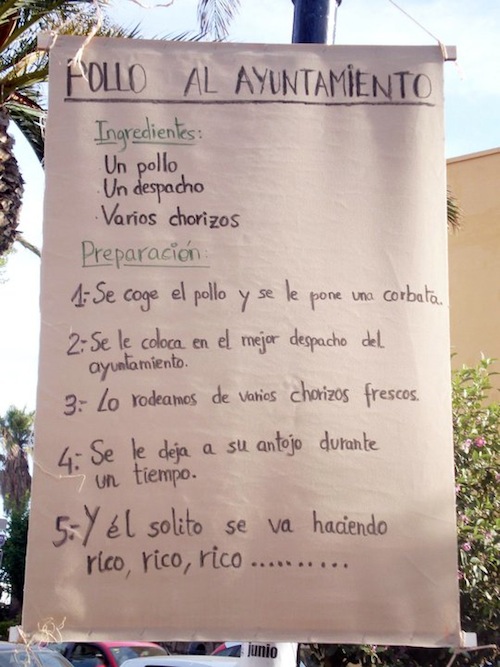 POLLO AL AYUNTAMIENTO
Ingredientes:
Un pollo
·Un despacho
·Varios chorizos
Preparación:
1:-Se coge el pollo y se le pone una corbata.
2:-Se le coloca en el mejor despacho del
ayuntamiento.
3:- Lo rodeamos de varios chorizos frescos.
4:- Se le deja a su antojo durante
un tiempo.
5:-Y él solito se va haciendo
rico, rico, rico ..........
junio